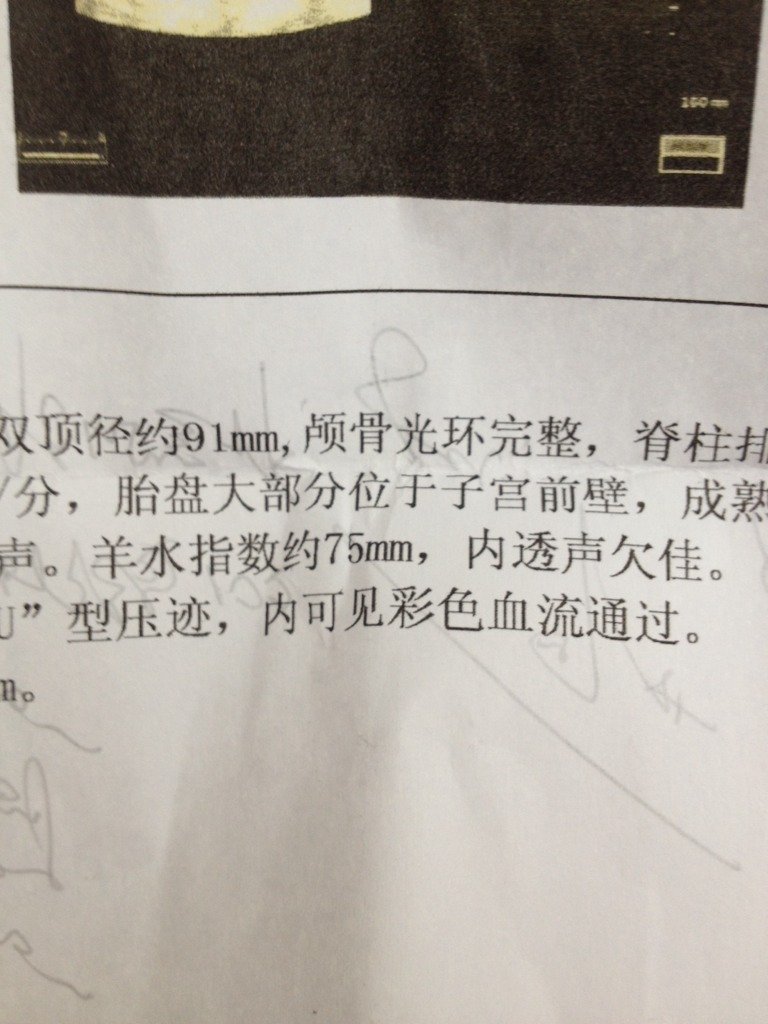 160 mm
双顶径约91mm,颅骨光环完整，脊柱排
/分，胎盘大部分位于子宫前壁，成熟
声。羊水指数约75mm，内透声欠佳。
U”型压迹，内可见彩色血流通过。
m。